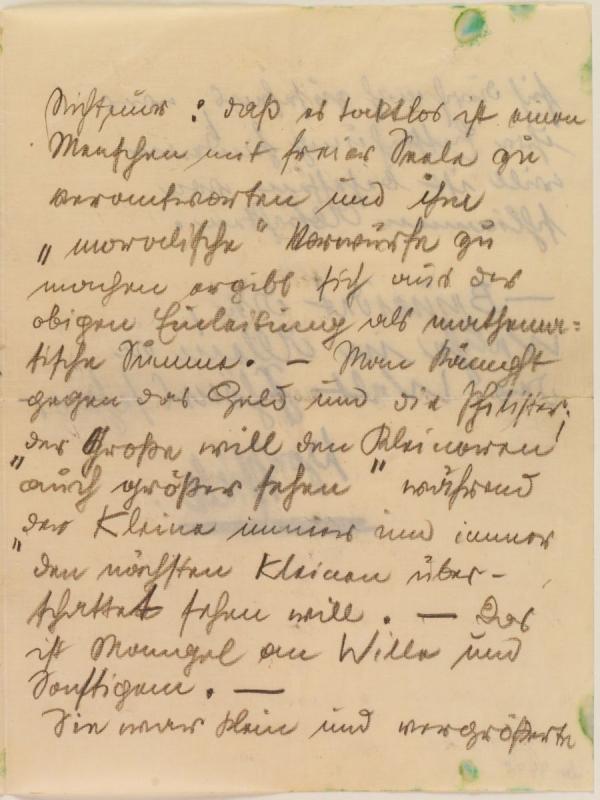 Nicht nur : daß es taktlos ist einen
Menschen mit freier Seele zu
verantworten und ihm
„ moralische " Vorwürfe zu
machen ergibt sich aus der
obigen Einleitung als mathema=
tische Summe. — Man kämpft
gegen das Geld und die Philister;
der Große will den Kleineren!
„ auch größer sehen " während
der Kleine immer und immer
„ den nächsten Kleinen über-
schattet sehen will. — Das
ist Mangel an Wille und
Sonstigem. —
Sie war klein und vergrößerte